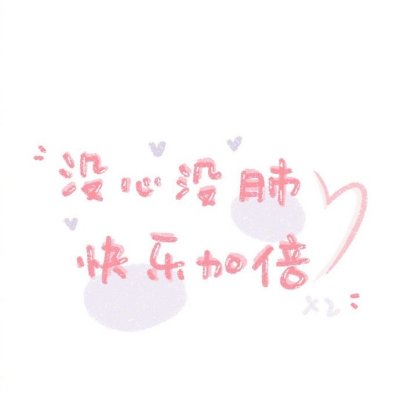 没心没肺
快乐加倍
x2